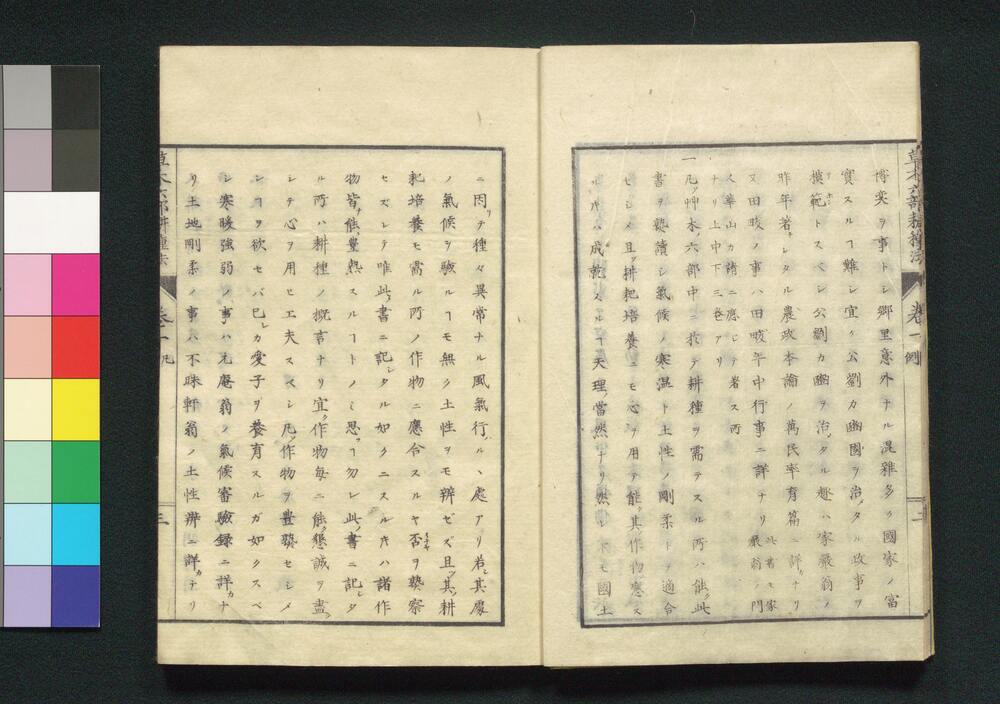 草木六部耕種法 卷一 例
博奕ヲ事トシ鄉里意外ナル混雜多ク國家ノ富
實スルヿ難シ宜ク公劉カ豳國ヲ治メタル政事ヲ
模範トスベシ公劉カ豳ヲ治メタル趣ハ家嚴翁ノ
昨年著シタル農政本論ノ萬民率育篇ニ詳カナリ
又田畯ノ事ハ田畯年中行事ニ詳ナリ 此書モ家嚴翁ノ門
人華山カ請ニ應シテ著ス所
ナリ上中下三卷アリ
一凡ソ艸木六部中ニ於テ耕種ヲ需テスル所ハ能ク此
書ヲ熟讀シ氣候ノ寒溫ト土性ノ剛柔トヲ適合
セシメ且ツ耕耙培養ニモ心ヲ用テ能ク其作物應ス
ル片ハ成乾スルヿ天理ノ當然ナリ然レ𪜈國土
ニ因リテ種々異常ナル風氣行ルヽ處アリ若シ其處
ノ氣候ヲ驗ルヿモ無ク土性ヲモ辨ゼズ且ツ其耕
耙培養モ需ル所ノ作物ニ應合スルヤ否ヲ熟察
セズシテ唯此書ニ記シタル如クニスル片ハ諸作
物皆能ク豐熟スルヿトノミ思フヿ勿レ此ノ書ニ記シタ
ル所ハ耕種ノ概言ナリ宜ク作物每ニ能ク懇誠ヲ盡
シテ心ヲ用ヒ工夫スベシ凡ソ作物ヲ豐熟セシメ
ンヿヲ欲セバ已レカ愛子ヲ養育スルガ如クスベ
シ寒暖強弱ノ事ハ元庵翁ノ氣候審驗錄ニ詳カナ
リ土地剛柔ノ事ハ不昧軒翁ノ土性辨ニ詳カナリ
草木六部耕種法 卷一 凡 三